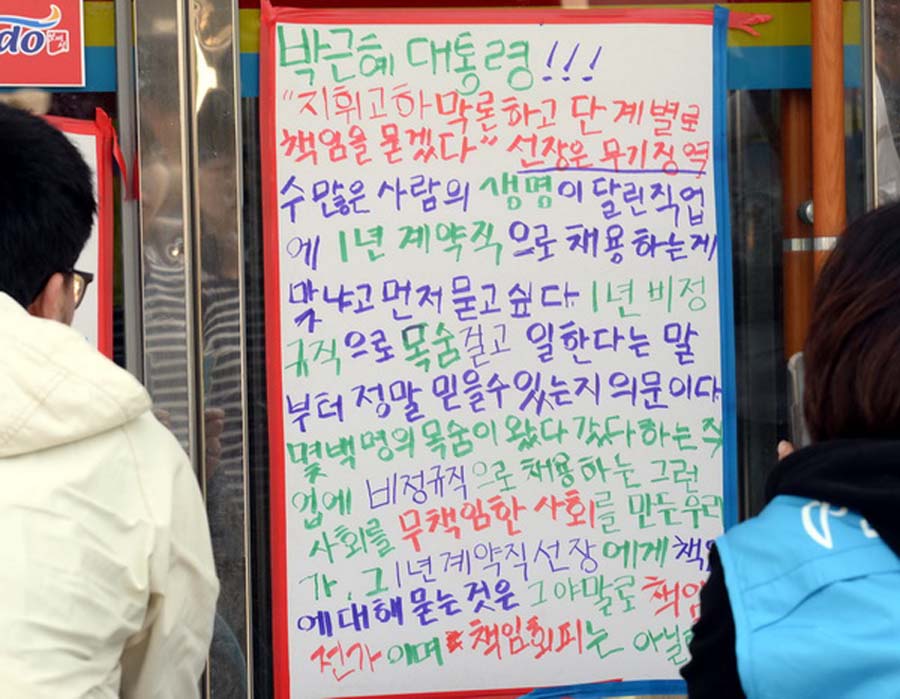 do
박근혜 대통령!!!
"지휘고하 막론하고 단계별로
책임을 묻겠다" 선장은 무기징역
수 많은 사람의 생명이 달린직업
에 1년 계약직으로 채용하는게
맞냐고 먼저 묻고 싶다. 1년 비정
규직으로 목숨걸고 일한다는 말
부터 정말 믿을수 있는지 의문이다
몇백명의 목숨이 왔다 갔다 하는 직
업에 비정규직으로 채용하는 그런
사회를 무책임한 사회를 만든 우리
가, 그 1년계약직선장에게 책
에 대해 묻는 것은 그야말로 책임
전가 이며 책임회피는 아닐